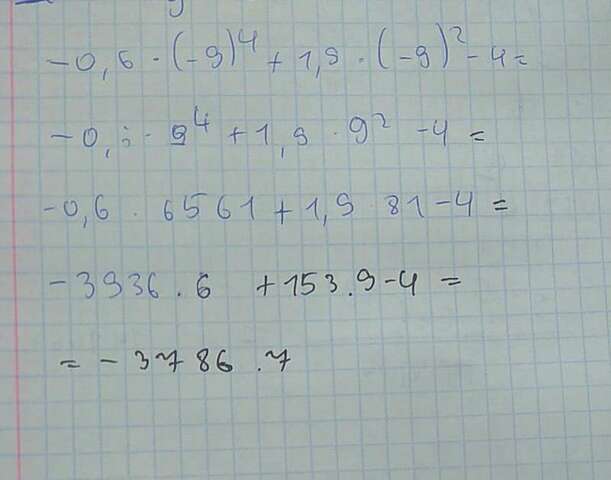 -0,6 · (-9)⁴ + 1,9 · (-9)² - 4 =
-0, · 9⁴ + 1,9 · 9² - 4 =
-0,6 · 6561 + 1,9 81 - 4 =
-3936.6 + 153.9 - 4 =
= - 3786.7